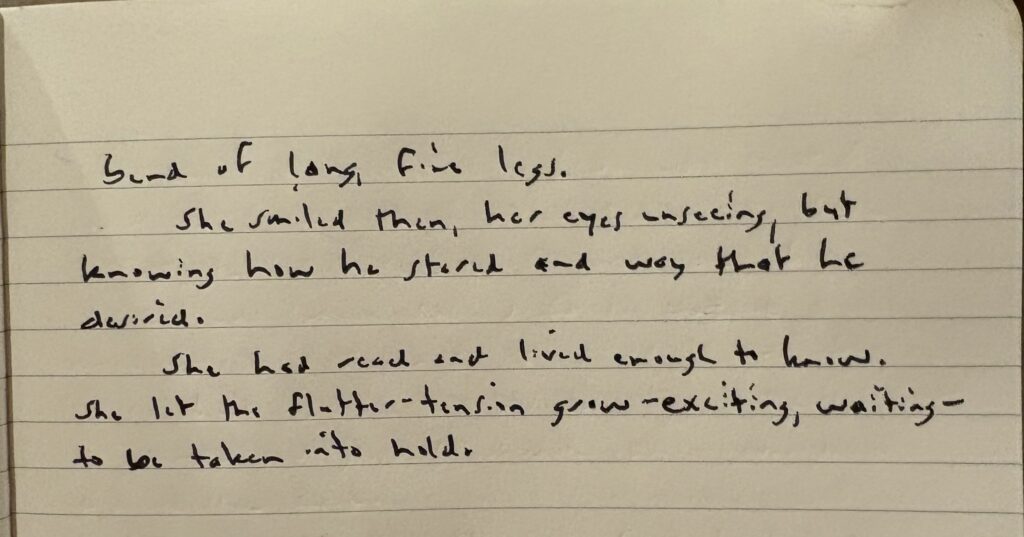 Bend of long, fine legs.
She smiled then, her eyes unseeing, but
knowing how he stared and way that he
desired.
She had read and lived enough to know.
She let the flutter-tension grow-exciting, waiting-
to be taken into hold.